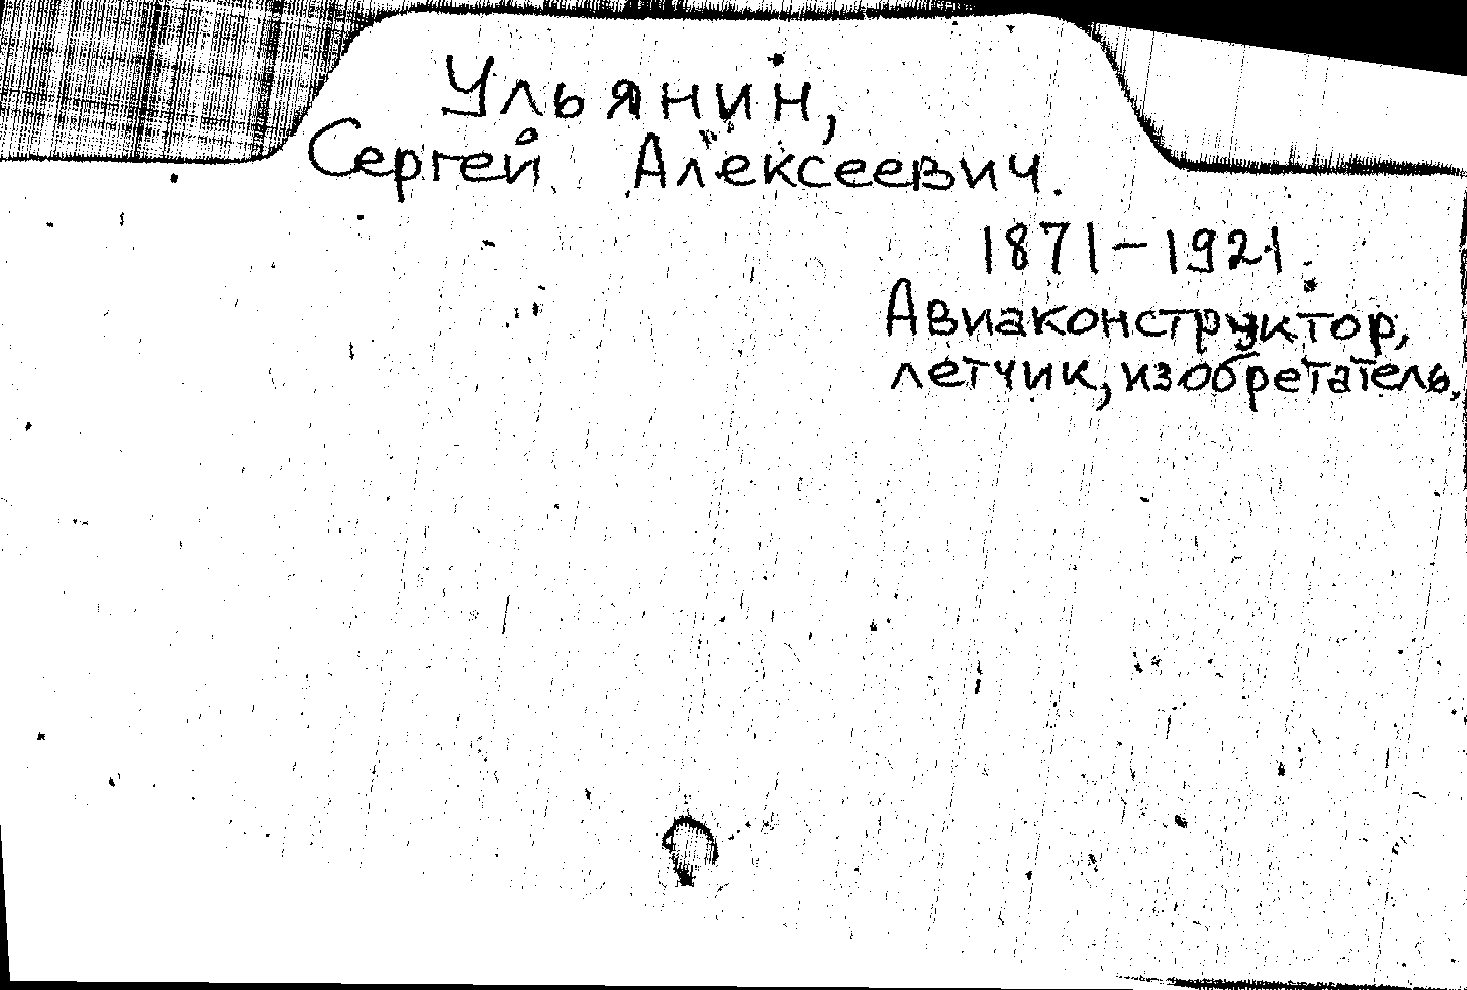 Ульянин,
Сергей Алексеевич.
1871-1921.
Авиаконструктор,
летчик, изобретатель.